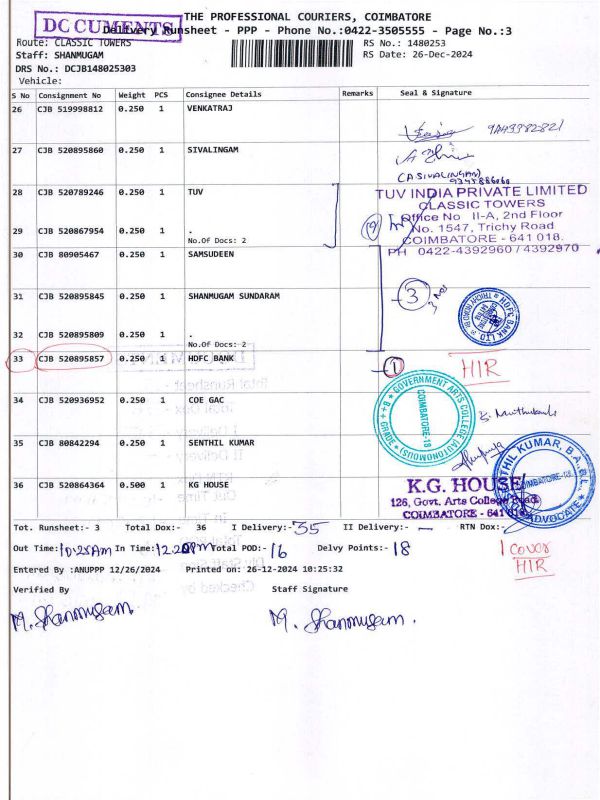 DOCUMENTS
THE PROFESSIONAL COURIERS, COIMBATORE
Delivery Runsheet - PPP - Phone No.:0422-3505555 - Page No.:3
Route: CLASSIC TOWERS
RS No.: 1480253
Staff: SHANMUGAM
RS Date: 26-Dec-2024
DRS No.: DCJB148025303
Vehicle:
S No Consignment No Weight PCS Consignee Details Remarks Seal & Signature
26 CJB 519998812 0.250 1 VENKATRAJ
27 CJB 520895860 0.250 1 SIVALINGAM
(A.SIVALINGAM)
28 CJB 520789246 0.250 1 TUV
TUV INDIA PRIVATE LIMITED
CLASSIC TOWERS
Office No II-A, 2nd Floor
No. 1547, Trichy Road
COIMBATORE - 641 018.
PH 0422-4392960 / 4392970
29 CJB 520867954 0.250 1 .
No.Of Docs: 2
30 CJB 80905467 0.250 1 SAMSUDEEN
31 CJB 520895845 0.250 1 SHANMUGAM SUNDARAM
3
HDFC BANK LTD
32 CJB 520895809 0.250 1 .
No.Of Docs: 2
33 CJB 520895857 0.250 1 HDFC BANK
1
HIR
34 CJB 520936952 0.250 1 COE GAC
GOVERNMENT ARTS COLLEGE (AUTONOMOUS)
COIMBATORE-18
35 CJB 80842294 0.250 1 SENTHIL KUMAR
SENTHIL KUMAR, B.A.,B.L.,
COIMBATORE-18
ADVOCATE
36 CJB 520864364 0.500 1 KG HOUSE
K.G. HOUSE
126, Govt. Arts College Road
COIMBATORE - 641 018
Tot. Runsheet:- 3 Total Dox:- 36 I Delivery:- 35 II Delivery:- — RTN Dox:-
Out Time: 10.25Am In Time: 12.20Pm Total POD:- 16 Delvy Points:- 18
1 cover
HIR
Entered By :ANUPPP 12/26/2024 Printed on: 26-12-2024 10:25:32
Verified By Staff Signature
M. Shanmugam. M. Shanmugam.